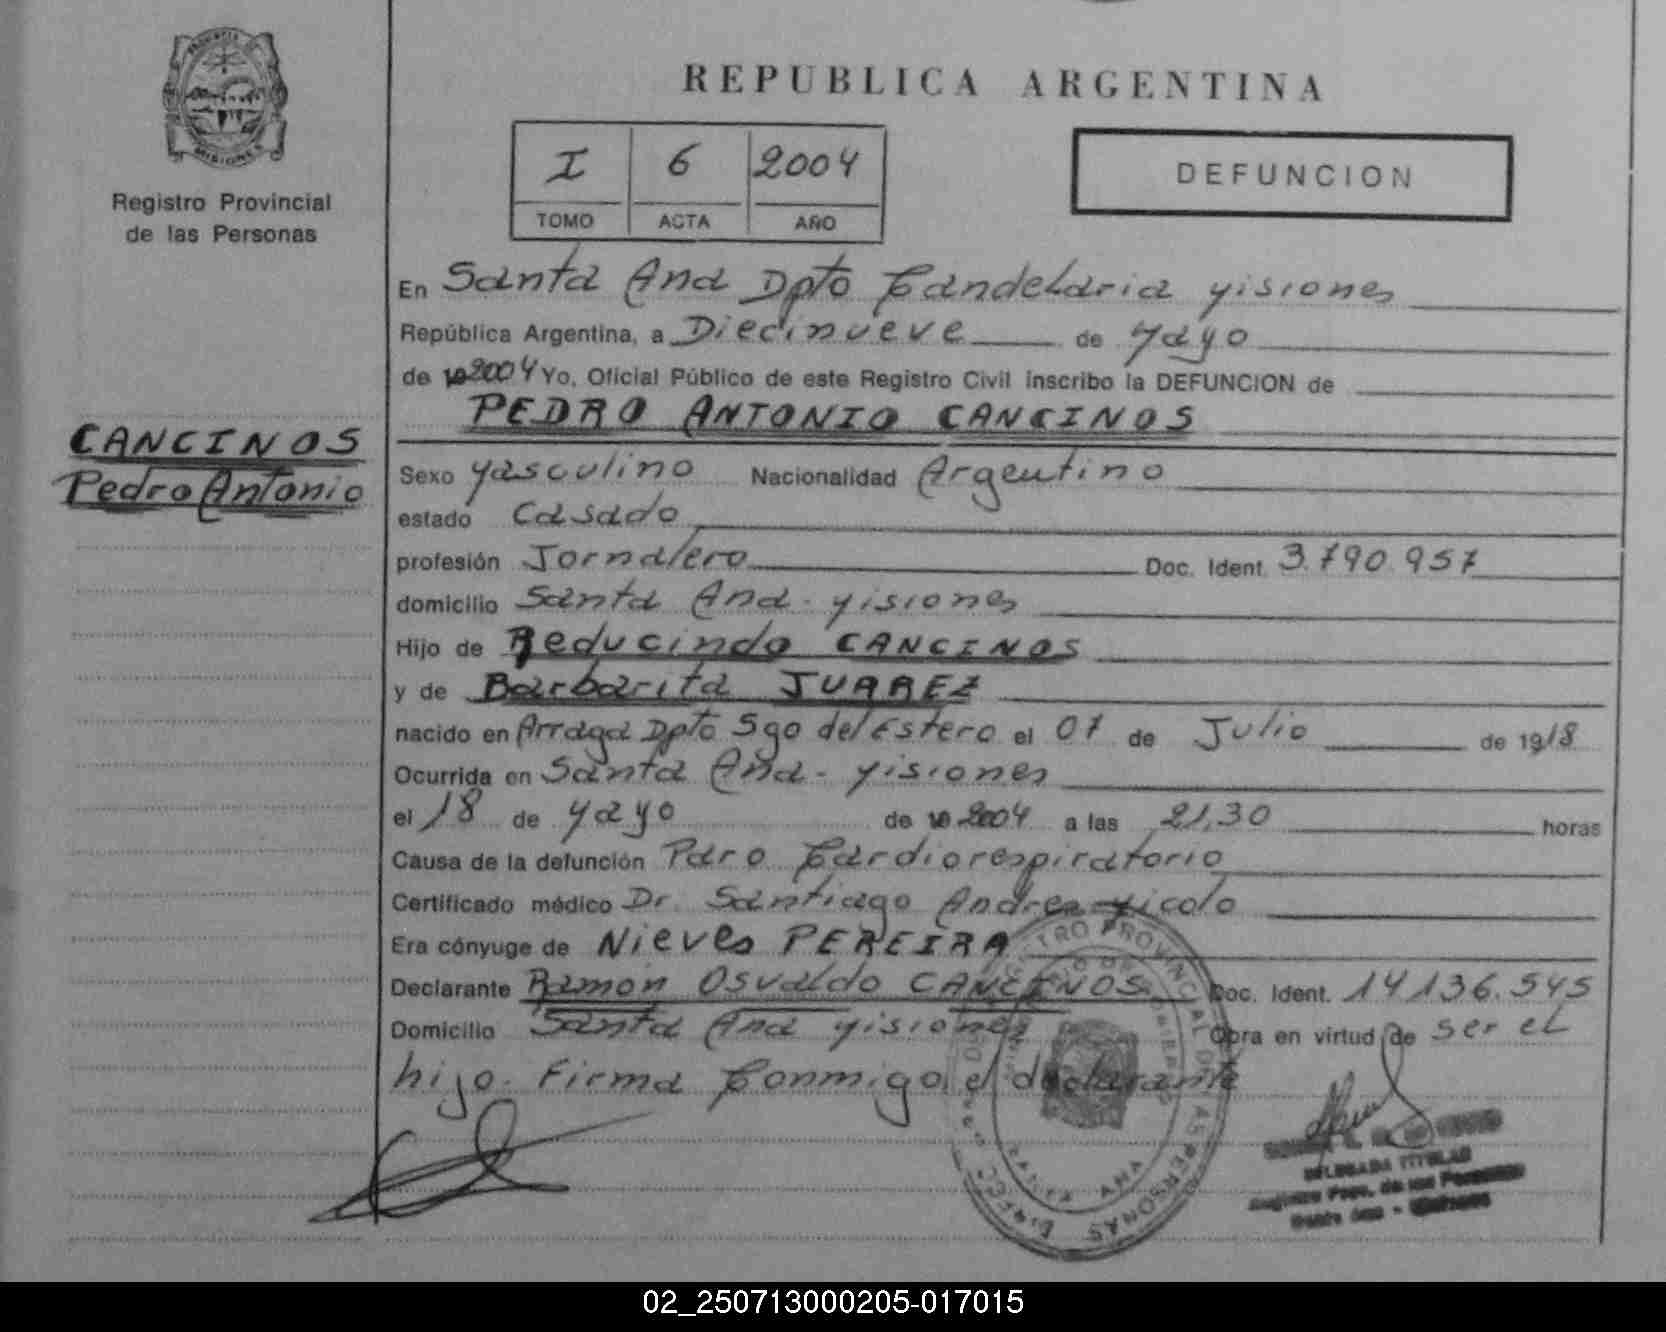 PROVINCIA DE
MISIONES
Registro Provincial
de las Personas
REPUBLICA ARGENTINA
I 6 2004
TOMO ACTA AÑO
DEFUNCION
En Santa Ana Dpto Candelaria Misiones
República Argentina, a Diecinueve de Mayo
de 19 2004 Yo, Oficial Público de este Registro Civil inscribo la DEFUNCION de
PEDRO ANTONIO CANCINOS
CANCINOS
Pedro Antonio
Sexo Masculino Nacionalidad Argentino
estado Casado
profesión Jornalero Doc. Ident. 3.790.957
domicilio Santa Ana - Misiones
Hijo de Reducindo CANCINOS
y de Barbarita JUAREZ
nacido en Arraga Dpto Sgo del Estero el 07 de Julio de 1918
Ocurrida en Santa Ana - Misiones
el 18 de Mayo de 19 2004 a las 21,30 horas
Causa de la defunción Paro Cardiorespiratorio
Certificado médico Dr. Santiago Andres Micolo
Era cónyuge de Nieves PEREIRA
Declarante Ramón Osvaldo CANCINOS Doc. Ident. 14.136.545
Domicilio Santa Ana Misiones Obra en virtud de ser el
hijo. Firma Conmigo el declarante
REGISTRO PROVINCIAL DE LAS PERSONAS
SANTA ANA
DELEGADA TITULAR
Registro Prov. de las Personas
Santa Ana - Misiones
02_250713000205-017015